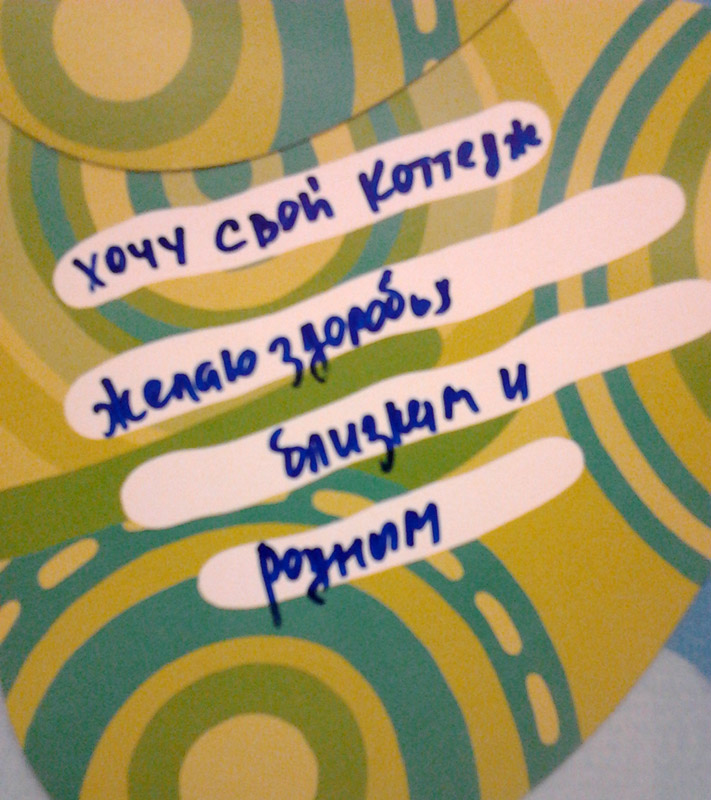 хочу свой коттедж
желаю здоровья
близким и
родным